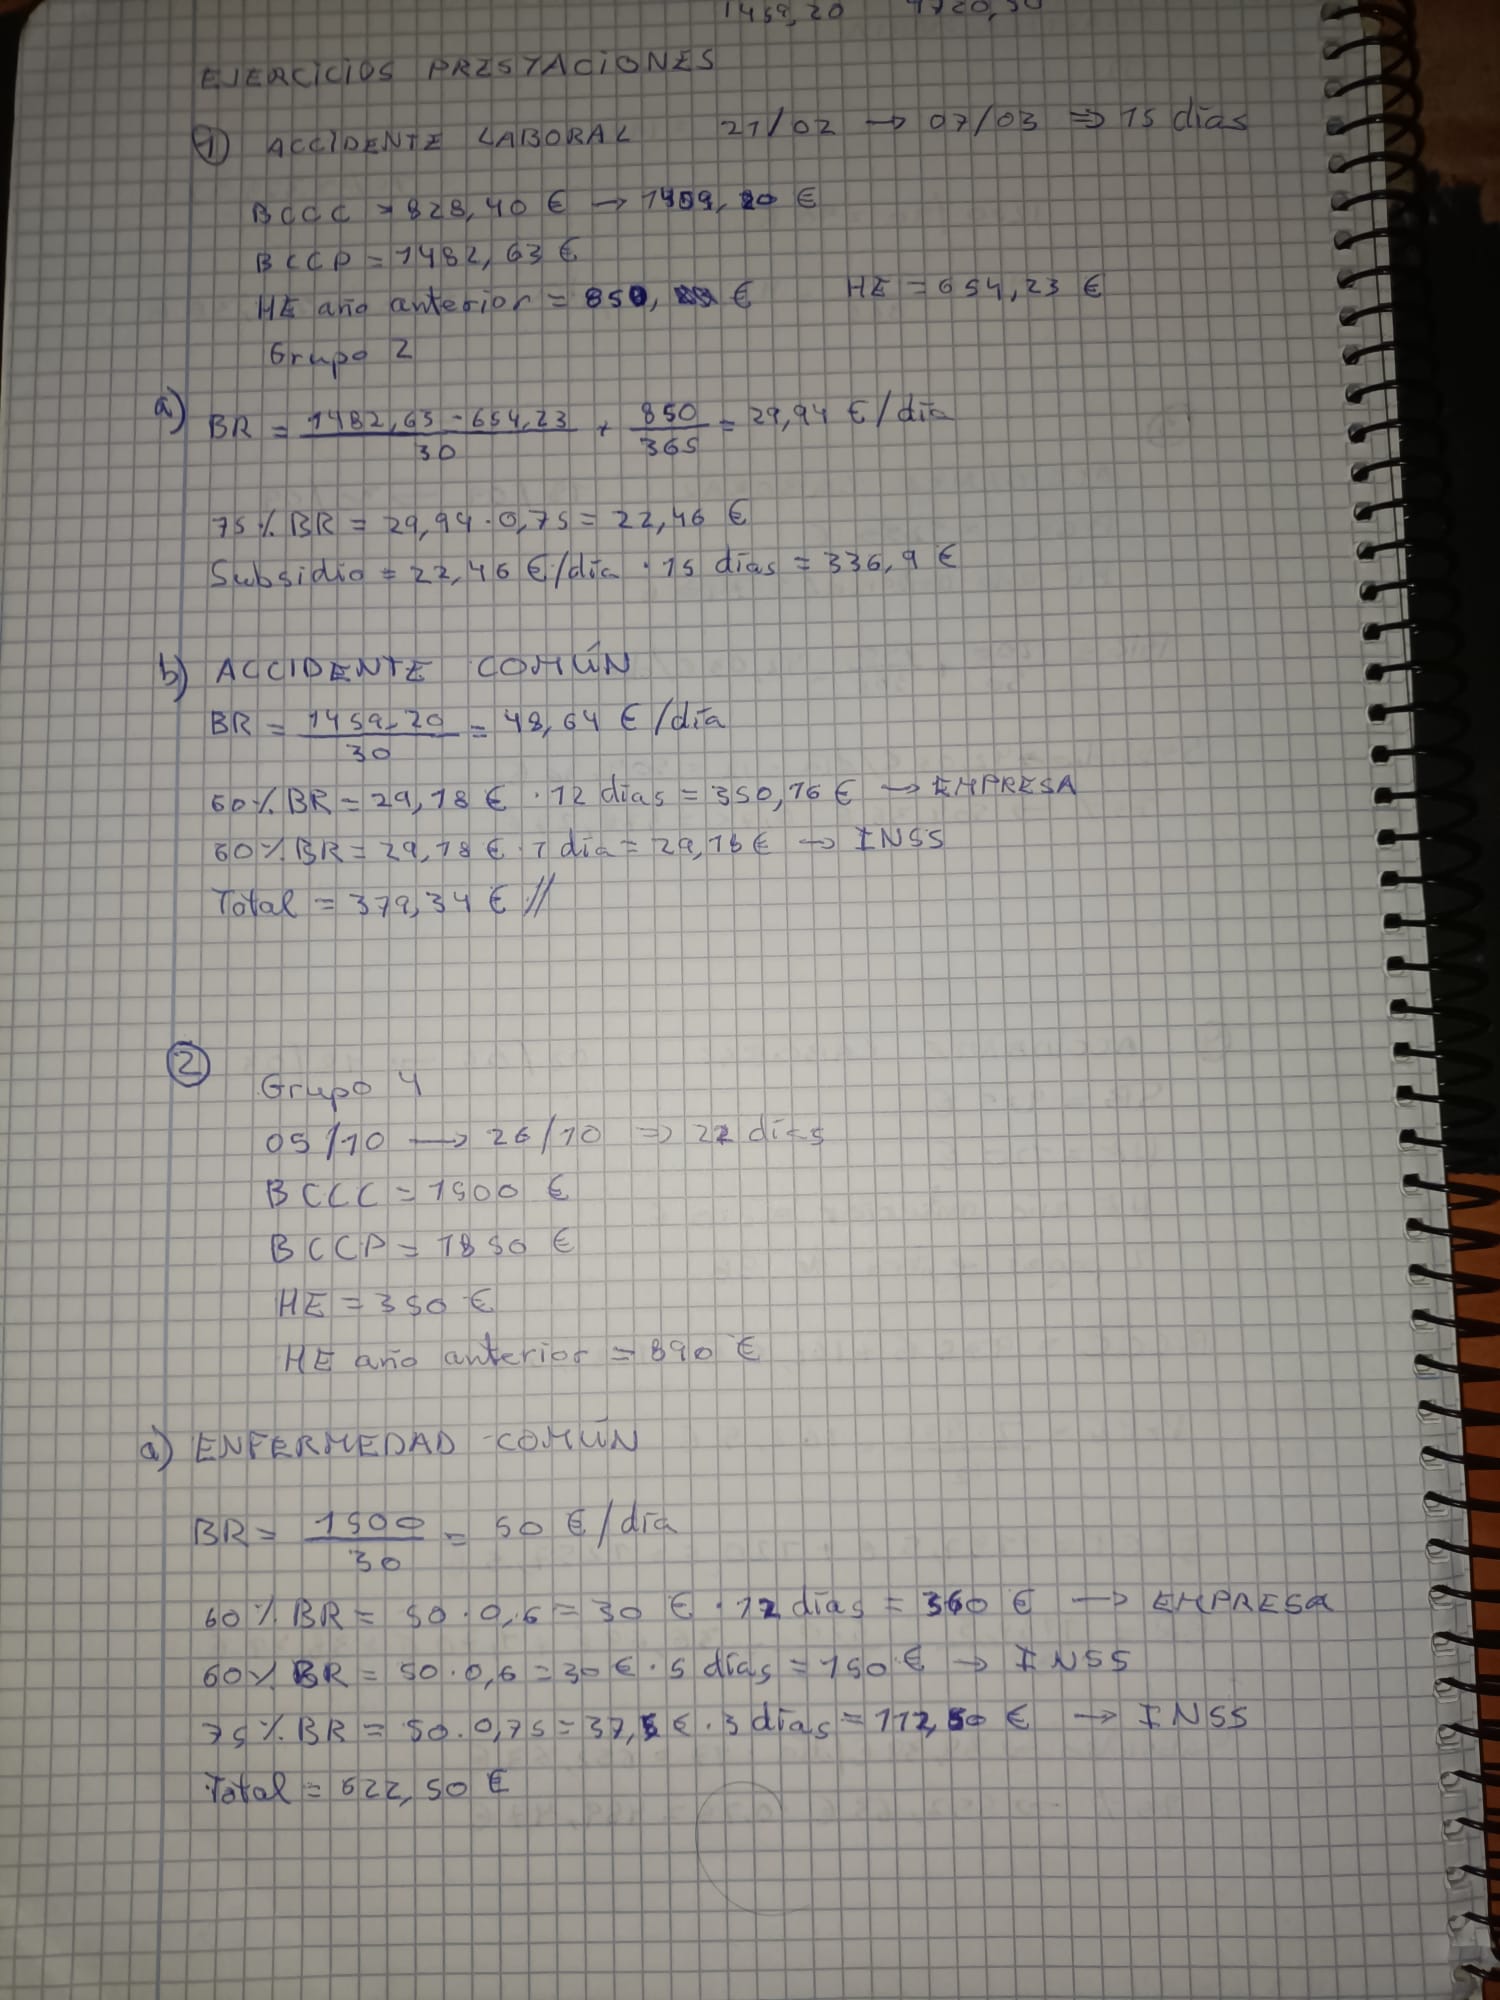 1459,20 4720,50
EJERCICIOS PRESTACIONES
1) ACCIDENTE LABORAL 21/02 → 07/03 ⇒ 15 días
BCCC = 828,40 € → 1459,20 €
BCCP = 1482,63 €
HE año anterior = 850, € HE = 654,23 €
Grupo 2
a) BR = 1482,63 - 654,23 / 30 + 850 / 365 = 29,94 €/día
75% BR = 29,94 · 0,75 = 22,46 €
Subsidio = 22,46 €/día · 15 días = 336,9 €
b) ACCIDENTE COMÚN
BR = 1459,20 / 30 = 48,64 €/día
60% BR = 29,18 € · 12 días = 350,16 € → EMPRESA
60% BR = 29,18 € · 1 día = 29,18 € → INSS
Total = 379,34 € //
2
Grupo 4
05/10 → 26/10 ⇒ 22 días
BCCC = 1500 €
BCCP = 1850 €
HE = 350 €
HE año anterior = 890 €
a) ENFERMEDAD COMÚN
BR = 1500 / 30 = 50 €/día
60% BR = 50 · 0,6 = 30 € · 12 días = 360 € → EMPRESA
60% BR = 50 · 0,6 = 30 € · 5 días = 150 € → INSS
75% BR = 50 · 0,75 = 37,5 € · 3 días = 112,50 € → INSS
Total = 622,50 €